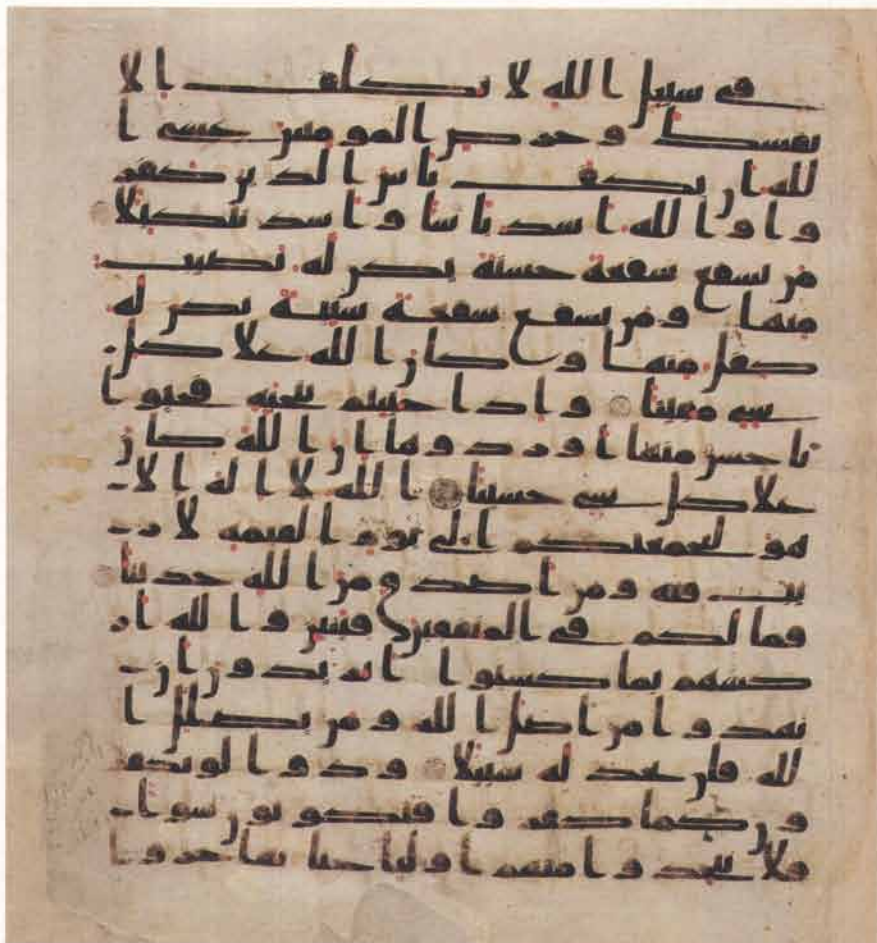 في سبيل الله لا تكلف الا
نفسك وحرض المومنين عسى ا
لله ان يكف باس الذين كفر
وا والله اشد باسا واشد تنكيلا
من يشفع شفعة حسنة يكن له نصيب
منها ومن يشفع شفعة سيئة يكن له
كفل منها وكان الله علا كل
شي مقيتا واذا حييتم بتحية فحيوا
باحسن منها او ردوها ان الله كان
علا كل شي حسيبا الله لا اله الا
هو ليجمعنكم الى يوم القيمة لا ر
يب فيه ومن اصدق من الله حديثا
فما لكم في المنفقين فئتين والله ار
كسهم بما كسبوا اتريدون ان
تهدوا من اضل الله ومن يضلل ا
لله فلن تجد له سبيلا ودوا لو تكفر
ون كما كفروا فتكونون سوا
فلا تتخذوا منهم اوليا حتا يهاجروا